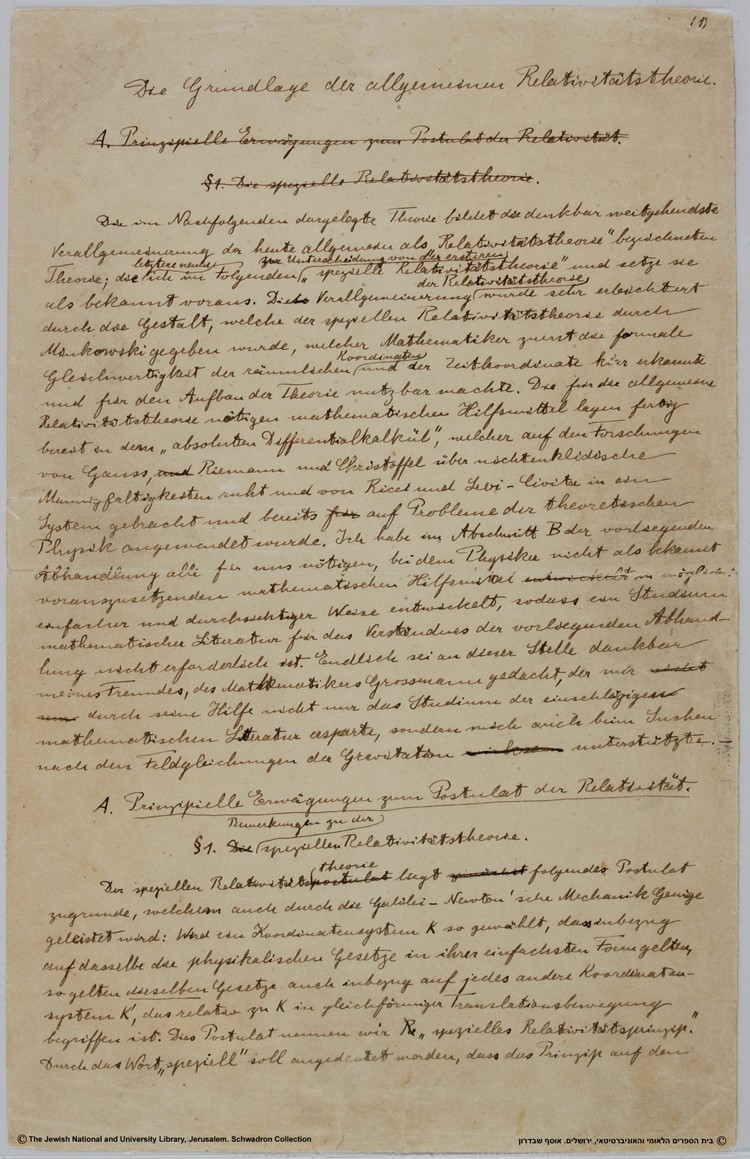 (1)
Die Grundlage der allgemeinen Relativitätstheorie.
A. Prinzipielle Erwägungen zum Postulat der Relativität.
§1. Die spezielle Relativitätstheorie.
Die im Nachfolgenden dargelegte Theorie bildet die denkbar weitgehendste
Verallgemeinerung der heute allgemein als „Relativitätstheorie" bezeichneten
letztere nenne zur Unterscheidung von der ersteren
Theorie; die ich im Folgenden „spezielle Relativitätstheorie" und setze sie
der Relativitätstheorie
als bekannt voraus. Die Verallgemeinerung wurde sehr erleichtert
durch die Gestalt, welche der speziellen Relativitätstheorie durch
Minkowski gegeben wurde, welcher Mathematiker zuerst die formale
Koordinaten
Gleichwertigkeit der räumlichen und der Zeitkoordinate klar erkannte
und für den Aufbau der Theorie nutzbar machte. Die für die allgemeine
Relativitätstheorie nötigen mathematischen Hilfsmittel lagen fertig
bereit in dem „absoluten Differentialkalkül", welcher auf den Forschungen
von Gauss, und Riemann und Christoffel über nichteuklidische
Mannigfaltigkeiten ruht und von Ricci und Levi-Civita in ein
System gebracht und bereits für auf Probleme der theoretischen
Physik angewendet wurde. Ich habe im Abschnitt B der vorliegenden
Abhandlung alle für uns nötigen, bei dem Physiker nicht als bekannt
vorauszusetzenden mathematischen Hilfsmittel entwickelt in möglichst
einfacher und durchsichtiger Weise entwickelt, sodass ein Studium
mathematischer Literatur für das Verständnis der vorliegenden Abhand-
lung nicht erforderlich ist. Endlich sei an dieser Stelle dankbar
meines Freundes, des Mathematikers Grossmann gedacht, der mir nicht
nur durch seine Hilfe nicht nur das Studium der einschlägigen
mathematischen Literatur ersparte, sondern mich auch beim Suchen
nach den Feldgleichungen der Gravitation unterstützte.
A. Prinzipielle Erwägungen zum Postulat der Relativität.
Bemerkungen zu der
§1. Die speziellen Relativitätstheorie.
theorie
Der speziellen Relativitätspostulat liegt zunächst folgendes Postulat
zugrunde, welchem auch durch die Galilei-Newton'sche Mechanik Genüge
geleistet wird: Wird ein Koordinatensystem K so gewählt, dass inbezug
auf dasselbe die physikalischen Gesetze in ihrer einfachsten Form gelten,
so gelten dieselben Gesetze auch inbezug auf jedes andere Koordinaten-
system K', das relativ zu K in gleichförmiger Translationsbewegung
begriffen ist. Dies Postulat nennen wir „spezielles Relativitätsprinzip."
Durch das Wort „speziell" soll angedeutet werden, dass das Prinzip auf den
© The Jewish National and University Library, Jerusalem. Schwadron Collection
© בית הספרים הלאומי והאוניברסיטאי, ירושלים. אוסף שבדרון